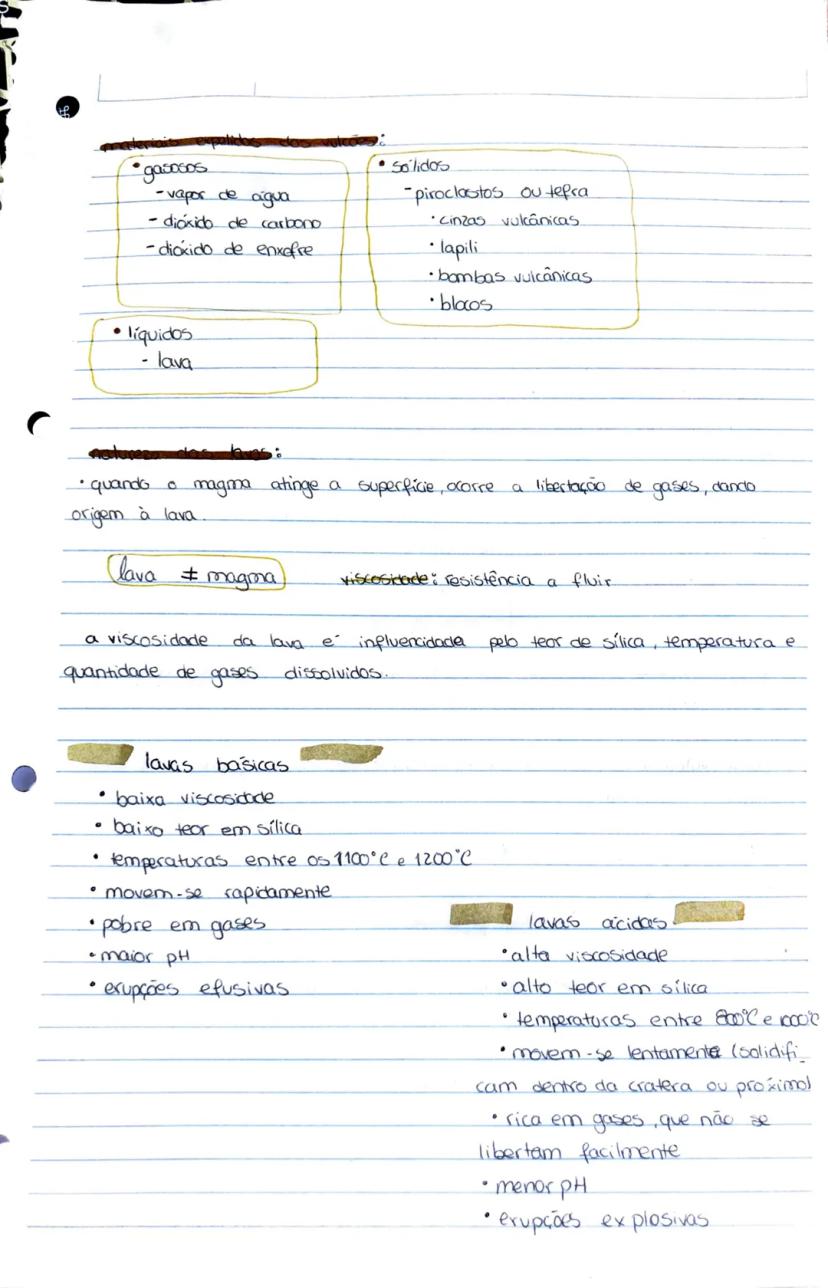 materiais expelidos dos vulcões:
• gasosos
- vapor de água
- dióxido de carbono
- dióxido de enxofre
• sólidos
- piroclastos ou tefra
• cinzas vulcânicas
• lapili
• bombas vulcânicas
• blocos
• líquidos
- lava
natureza das lavas:
• quando o magma atinge a superfície, ocorre a libertação de gases, dando
origem à lava.
lava ≠ magma
viscosidade: resistência a fluir
a viscosidade da lava é influenciada pelo teor de sílica, temperatura e
quantidade de gases dissolvidos.
lavas básicas
• baixa viscosidade
• baixo teor em sílica
• temperaturas entre os 1100°C e 1200°C
• movem-se rapidamente
• pobre em gases
• maior pH
• erupções efusivas
lavas ácidas
• alta viscosidade
• alto teor em sílica
• temperaturas entre 800°C e 1000°C
• movem-se lentamente (solidifi-
cam dentro da cratera ou próximo)
• rica em gases, que não se
libertam facilmente
• menor pH
• erupções explosivas